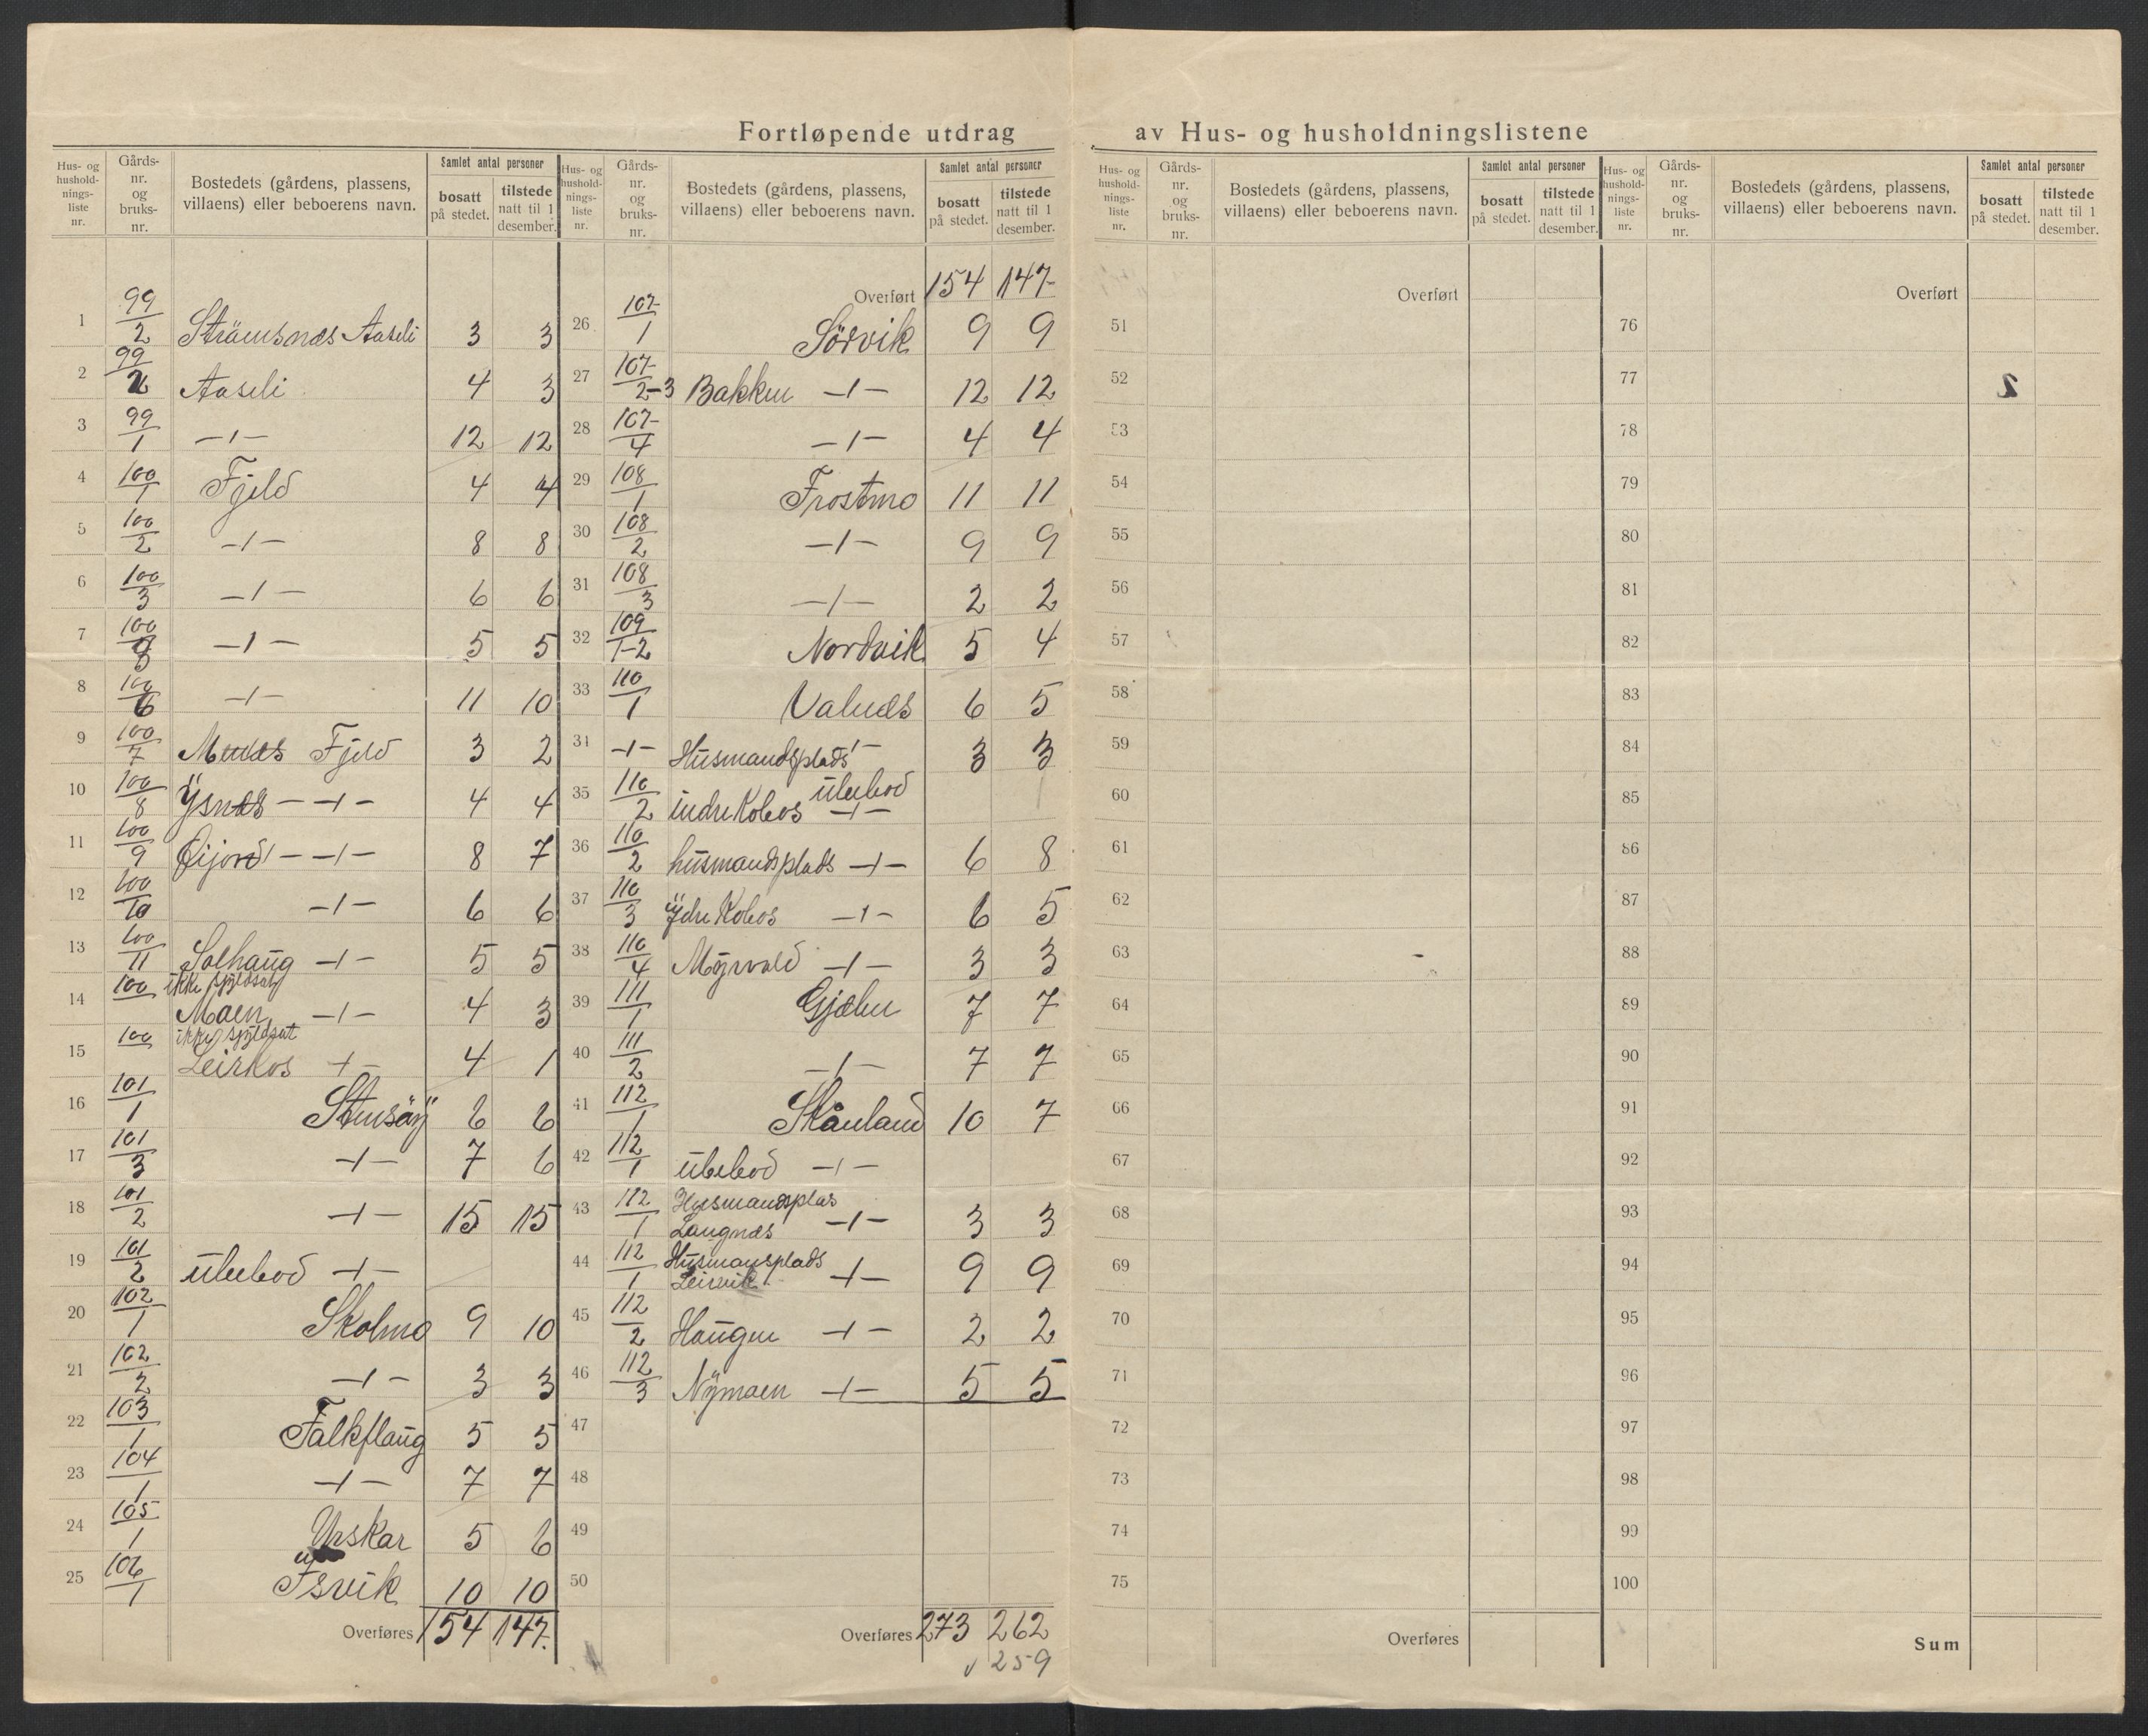 Fortløpende utdrag av Hus- og husholdningslistene
Hus- og hushold-nings-liste nr. Gårds-nr. og bruks-nr. Bostedets (gårdens, plassens, villaens) eller beboerens navn. Samlet antal personer bosatt på stedet. tilstede natt til 1 desember.
1 99/2 Strömsnæs Aaseli 3 3
2 99/2 Aaseli 4 3
3 99/1 —ı— 12 12
4 100/1 Fjeld 4 4
5 100/2 —ı— 8 8
6 100/3 —ı— 6 6
7 100/ —ı— 5 5
8 100/6 —ı— 11 10
9 100/7 Fjeld 3 2
10 100/8 Ysnæs —ı— 4 4
11 100/9 Öijord —ı— 8 7
12 100/10 —ı— 6 6
13 100/11 Solhaug —ı— 5 5
14 100 ikke skyldsat
Moen —ı— 4 3
15 100 ikke skyldsat
Leirkos —ı— 4 1
16 101/1 Stensöy 6 6
17 101/3 —ı— 7 6
18 101/2 —ı— 15 15
19 101/2 ubebod —ı—
20 102/1 Skolmo 9 10
21 102/2 —ı— 3 3
22 103/1 Falkflaug 5 5
23 104/1 —ı— 7 7
24 105/1 Urskar 5 6
25 106/1 Isvik 10 10
Overføres 154 147
Hus- og hushold-nings-liste nr. Gårds-nr. og bruks-nr. Bostedets (gårdens, plassens, villaens) eller beboerens navn. Samlet antal personer bosatt på stedet. tilstede natt til 1 desember.
Overført 154 147
26 107/1 Sörvik 9 9
27 107/2-3 Bakken —ı— 12 12
28 107/4 —ı— 4 4
29 108/1 Frostmo 11 11
30 108/2 —ı— 9 9
31 108/3 —ı— 2 2
32 109/1-2 Nordvik 5 4
33 110/1 Valnæs 6 5
34 —ı— Husmandsplads —ı— 3 3
35 110/2 indre Kobos ubebod —ı—
36 110/2 husmandsplads —ı— 6 8
37 110/3 ydre Kobos —ı— 6 5
38 110/4 Myrvold —ı— 3 3
39 111/1 Gjælen 7 7
40 111/2 —ı— 7 7
41 112/1 Skånland 10 7
42 112/1 ubebod —ı—
43 112/1 Husmandsplas
Langnæs —ı— 3 3
44 112/1 Husmansplads
Leirvik —ı— 9 9
45 112/2 Haugen —ı— 2 2
46 112/3 Nymoen —ı— 5 5
47
48
49
50
Overføres 273 262
✓ 259
Hus- og hushold-nings-liste nr. Gårds-nr. og bruks-nr. Bostedets (gårdens, plassens, villaens) eller beboerens navn. Samlet antal personer bosatt på stedet. tilstede natt til 1 desember.
Overført
51
52
53
54
55
56
57
58
59
60
61
62
63
64
65
66
67
68
69
70
71
72
73
74
75
Overføres
Hus- og hushold-nings-liste nr. Gårds-nr. og bruks-nr. Bostedets (gårdens, plassens, villaens) eller beboerens navn. Samlet antal personer bosatt på stedet. tilstede natt til 1 desember.
Overført
76
77
78
79
80
81
82
83
84
85
86
87
88
89
90
91
92
93
94
95
96
97
98
99
100
Sum